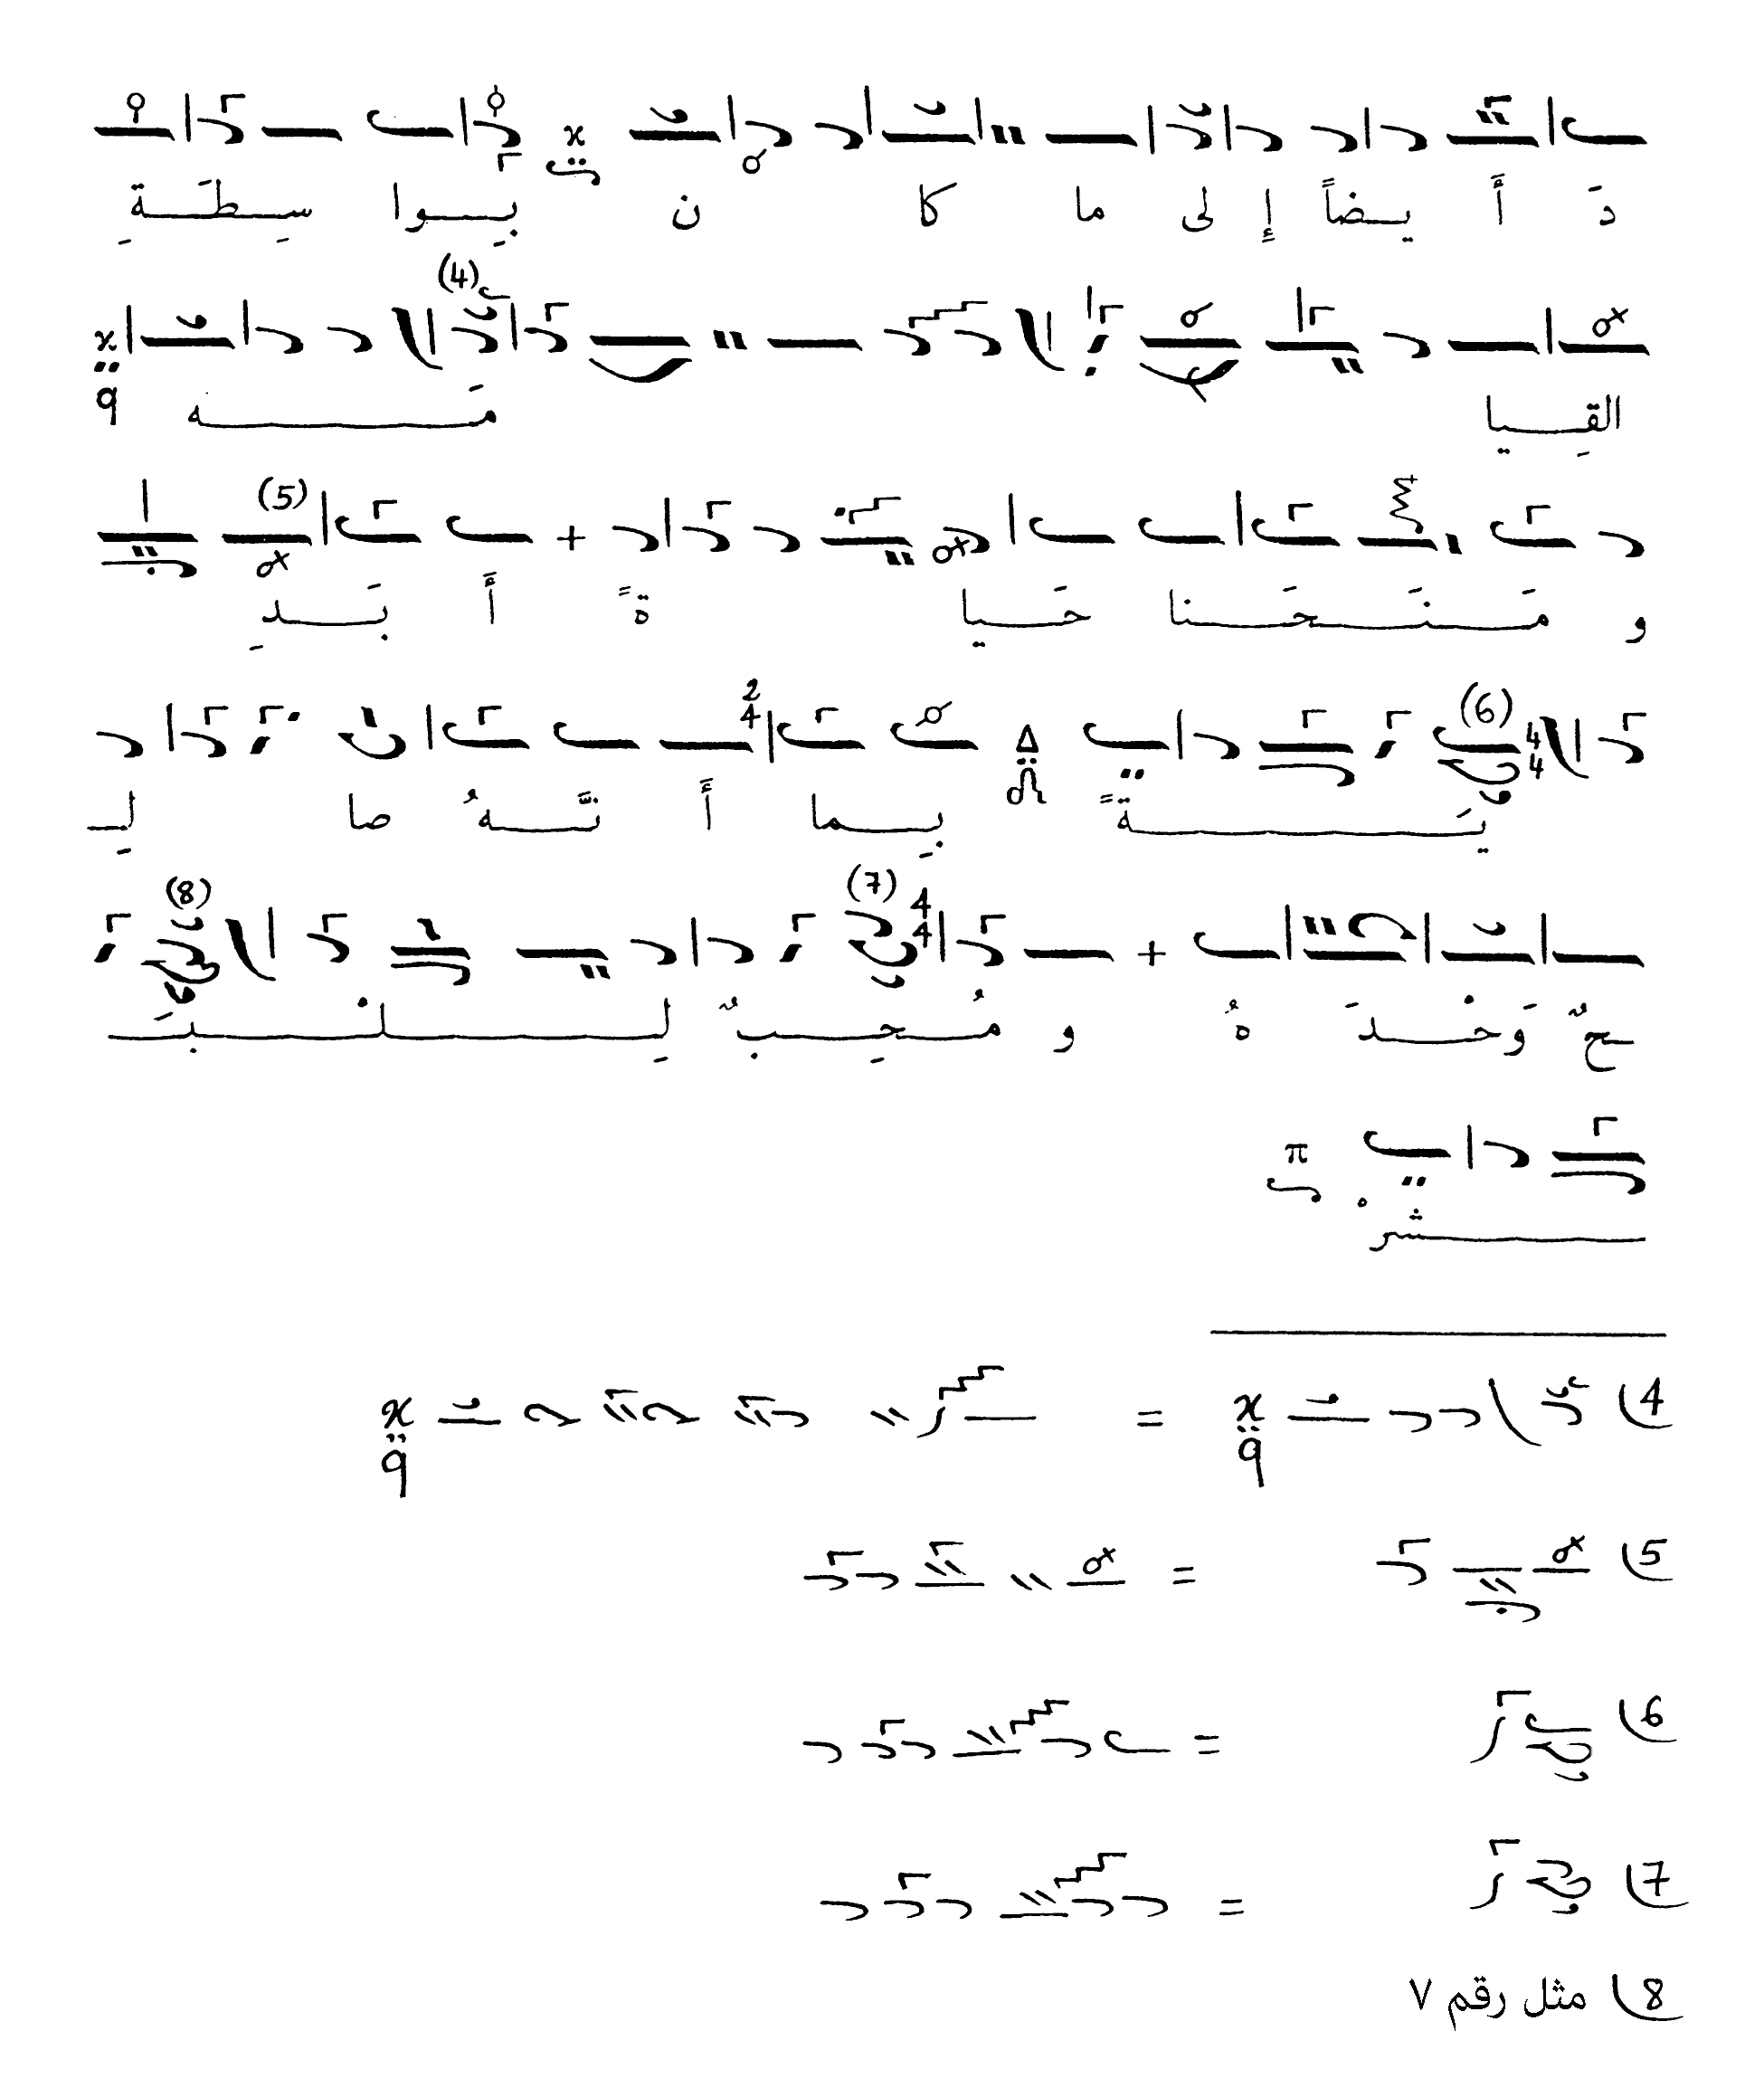 دَ أَ يـضاً إِ لى ما كا ن بِـوا سِـطَـةِ
(4)
القِـيا مَـه
(5)
و مَـنَـحَـنا حَـيا ةً أَ بَـدِ
(6) 4 4 2 4
يَـةً بِـما أَ نَّـهُ صا لِـ
(7) 4 4 (8)
ـحٌ وَحْـدَ هُ و مُـحِـبٌ لِـلْـبَـ
ـشر π
4) =
5) =
6) =
7) =
8) مثل رقم ٧